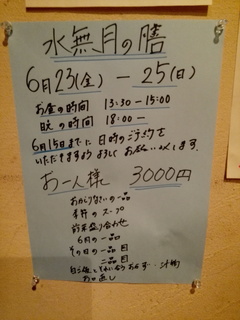 水無月の膳
6月23(金)－25(日)
お昼の時間 13:30－15:00
晩の時間 18:00－
6月15日までに日時のご予約を
いただきますよう よろしくお願いいたします.
お一人様 3000円
おかわりないの一品
季節のスープ
前菜盛り合わせ
6月の一品
その日の一品目
二品目
お口直し